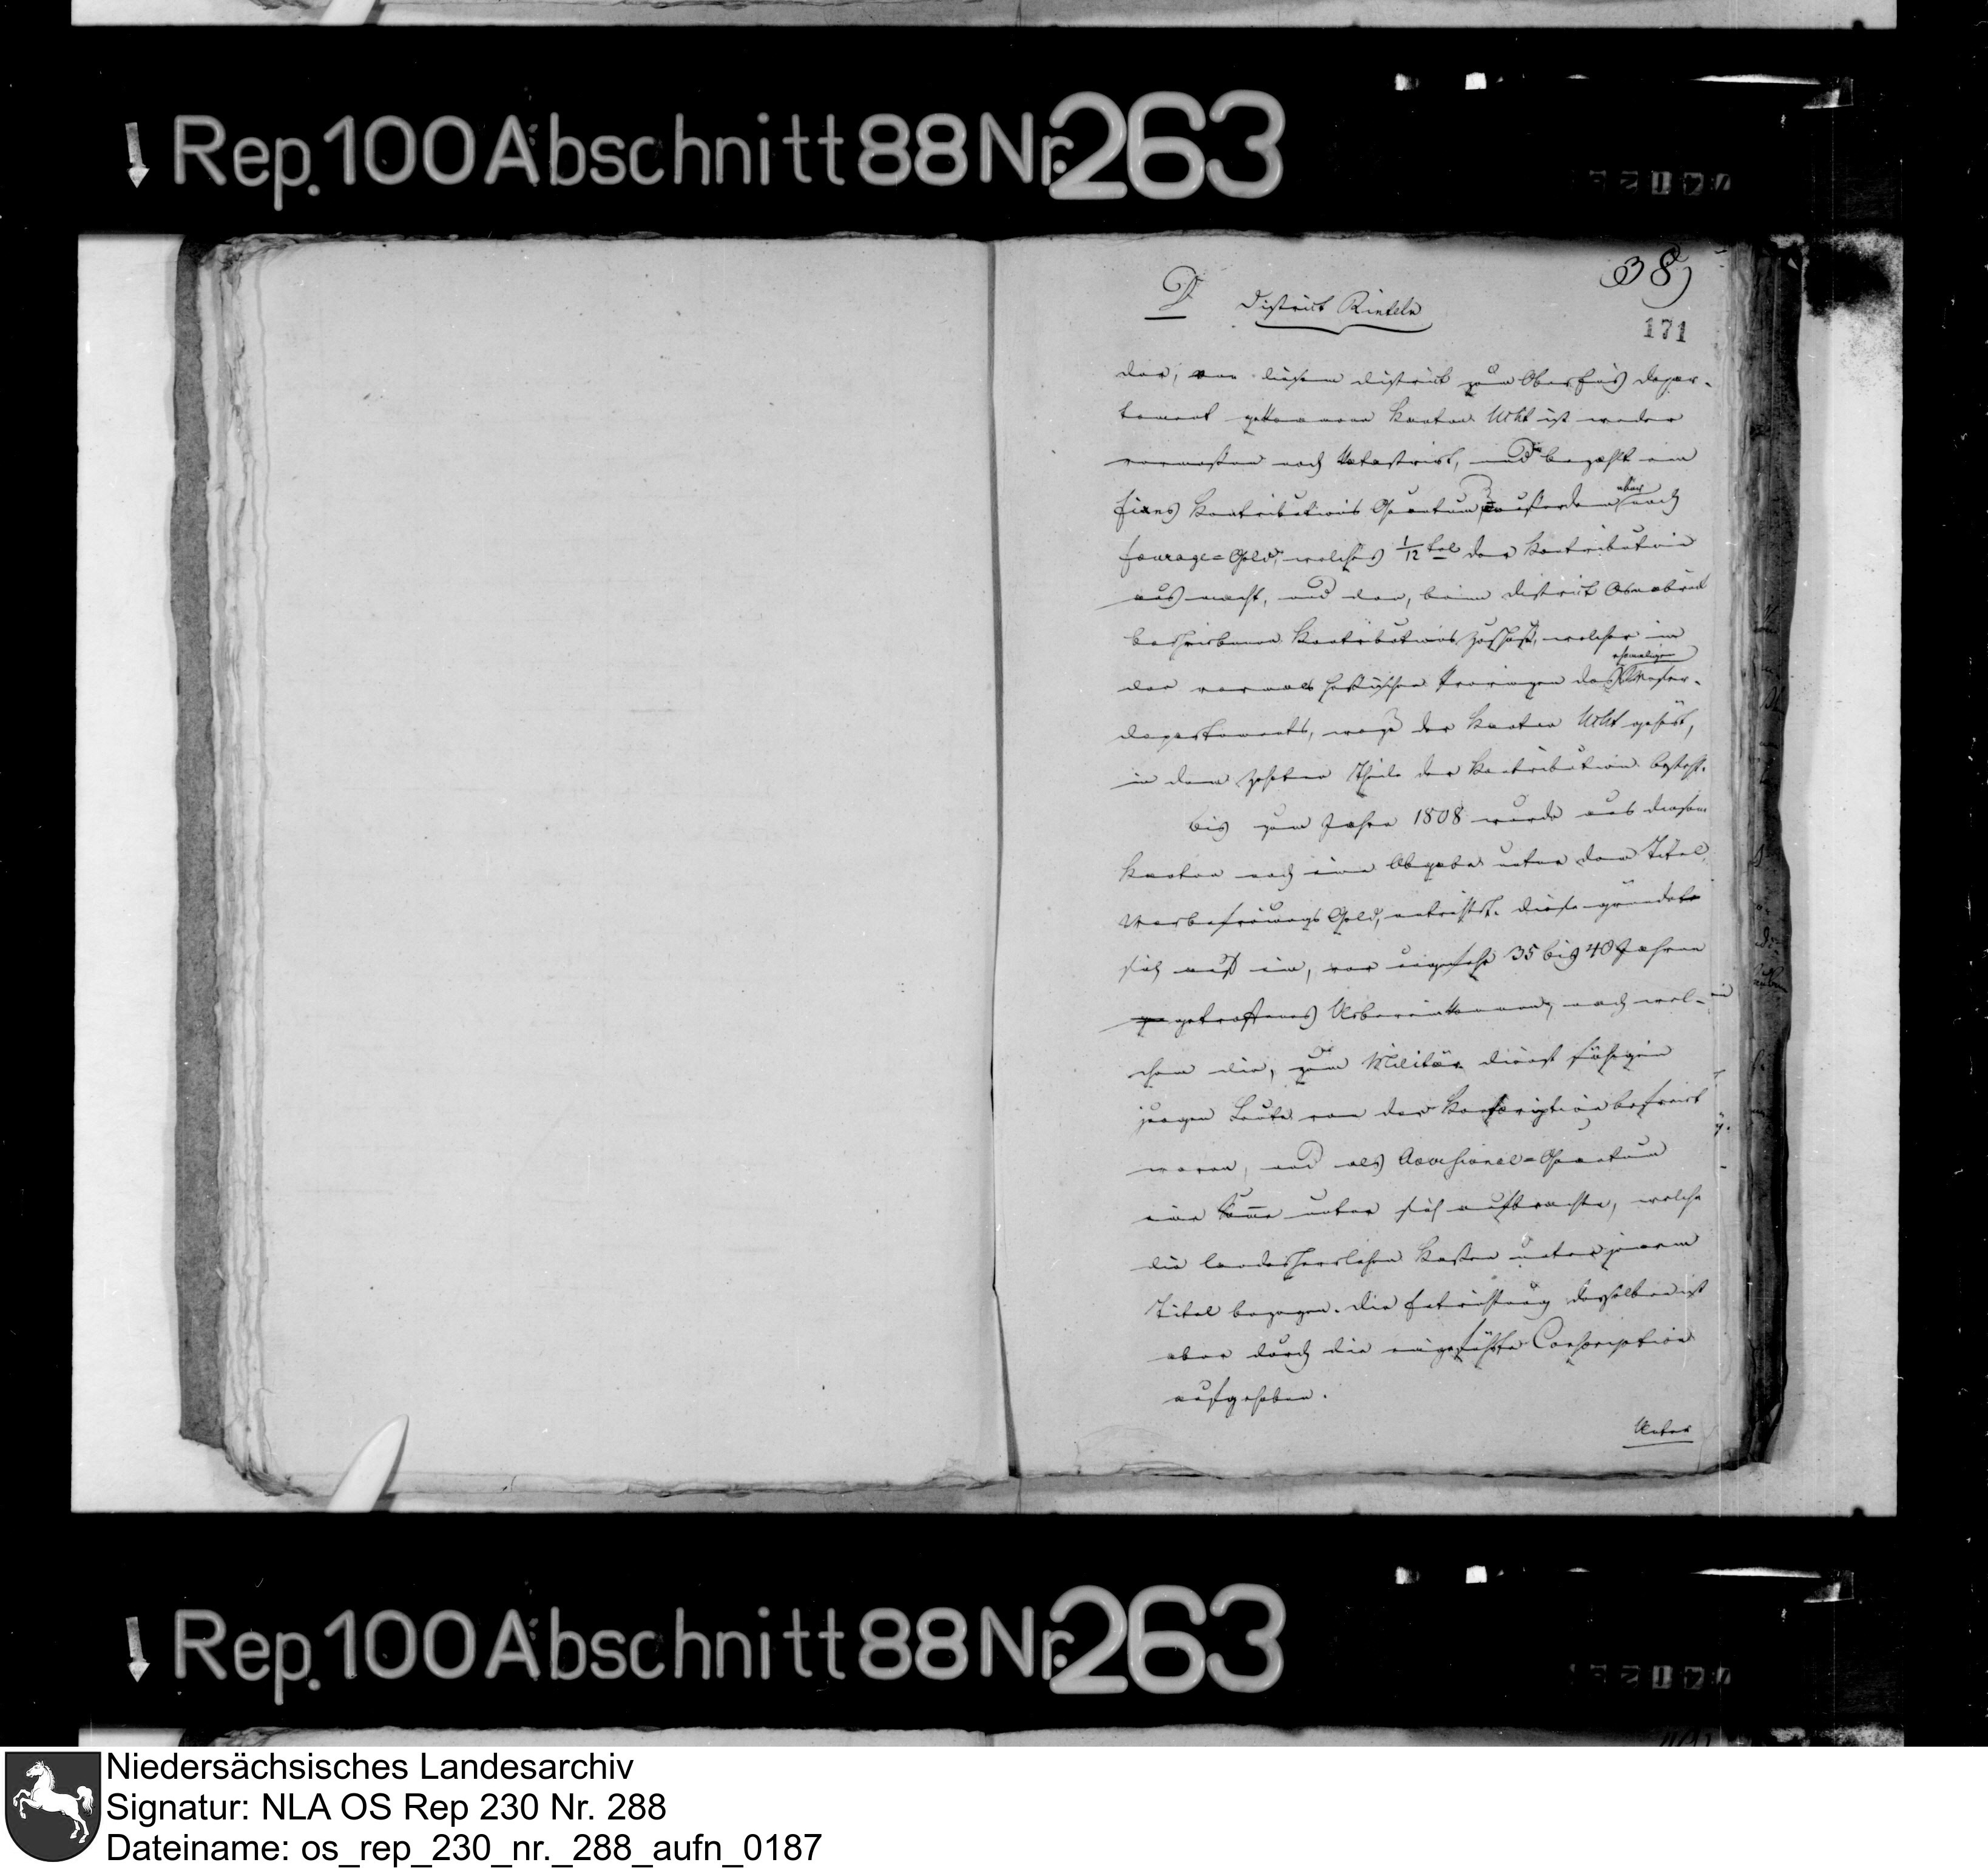 Rep. 100 Abschnitt 88 Nr. 263
38)
D District Rinteln
171
der, von diesem district zum Oberems depar-
tement gekommene Kanton Ucht ist weder
vermessen noch katastrirt, und bezahlt ein
fixes Kontributions Quantum, ausserdem aber noch
fourage-Geld, welches 1/12 tel der Kontribution
ausmacht, und den, beim district Osnabrück
beschriebenen Kontributions Zuschuß, welcher in
den vormals hessischen Provinzen des ehemaligen Weser-
departements, wozu der Kanton Ucht gehört,
in dem zehnten Theile der Kontribution besteht.
bis zum Jahre 1808 wurde aus diesem
Kanton noch eine Abgabe unter dem Titel
Werbefreiungs Geld, entrichtet. diese gründete
sich auf ein, vor ungefehr 35 bis 40 Jahren
getroffenes Uebereinkommen, nach wel-
chem die, zum Militär dienst fähigen
jungen Leute von der Konscription befreit
waren, und als Aversional-Quantum
eine Summe unter sich aufbrachten, welche
die landesherrlichen Kassen unter jenem
Titel bezogen. die Entrichtung desselben ist
aber durch die eingeführte Conscription
aufgehoben.
Unter
Rep. 100 Abschnitt 88 Nr. 263
Niedersächsisches Landesarchiv
Signatur: NLA OS Rep 230 Nr. 288
Dateiname: os_rep_230_nr._288_aufn_0187